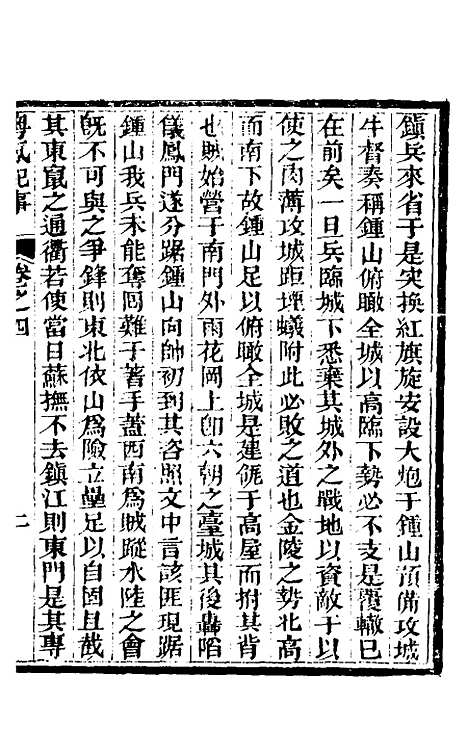 鎭兵來省于是突換紅旗旋安設大炮于鍾山預備攻城
牛督奏稱鍾山俯瞰全城以高臨下勢必不支是覆轍已
在前矣一旦兵臨城下悉棄其城外之戰地以資敵于以
使之肉薄攻城距堙蟻附此必敗之道也金陵之勢北高
而南下故鍾山足以俯瞰全城是建瓴于高屋而拊其背
也賊始營于南門外雨花岡上卽六朝之臺城其後轟陷
儀鳳門遂分踞鍾山向帥初到其咨照文中言該匪現踞
鍾山我兵未能奪囘難于著手葢西南爲賊蹤水陸之會
旣不可與之爭鋒則東北依山爲險立壘足以自固且截
其東竄之通衢若使當日蘇撫不去鎭江則東門是其專
粤氛紀事 卷之四 二